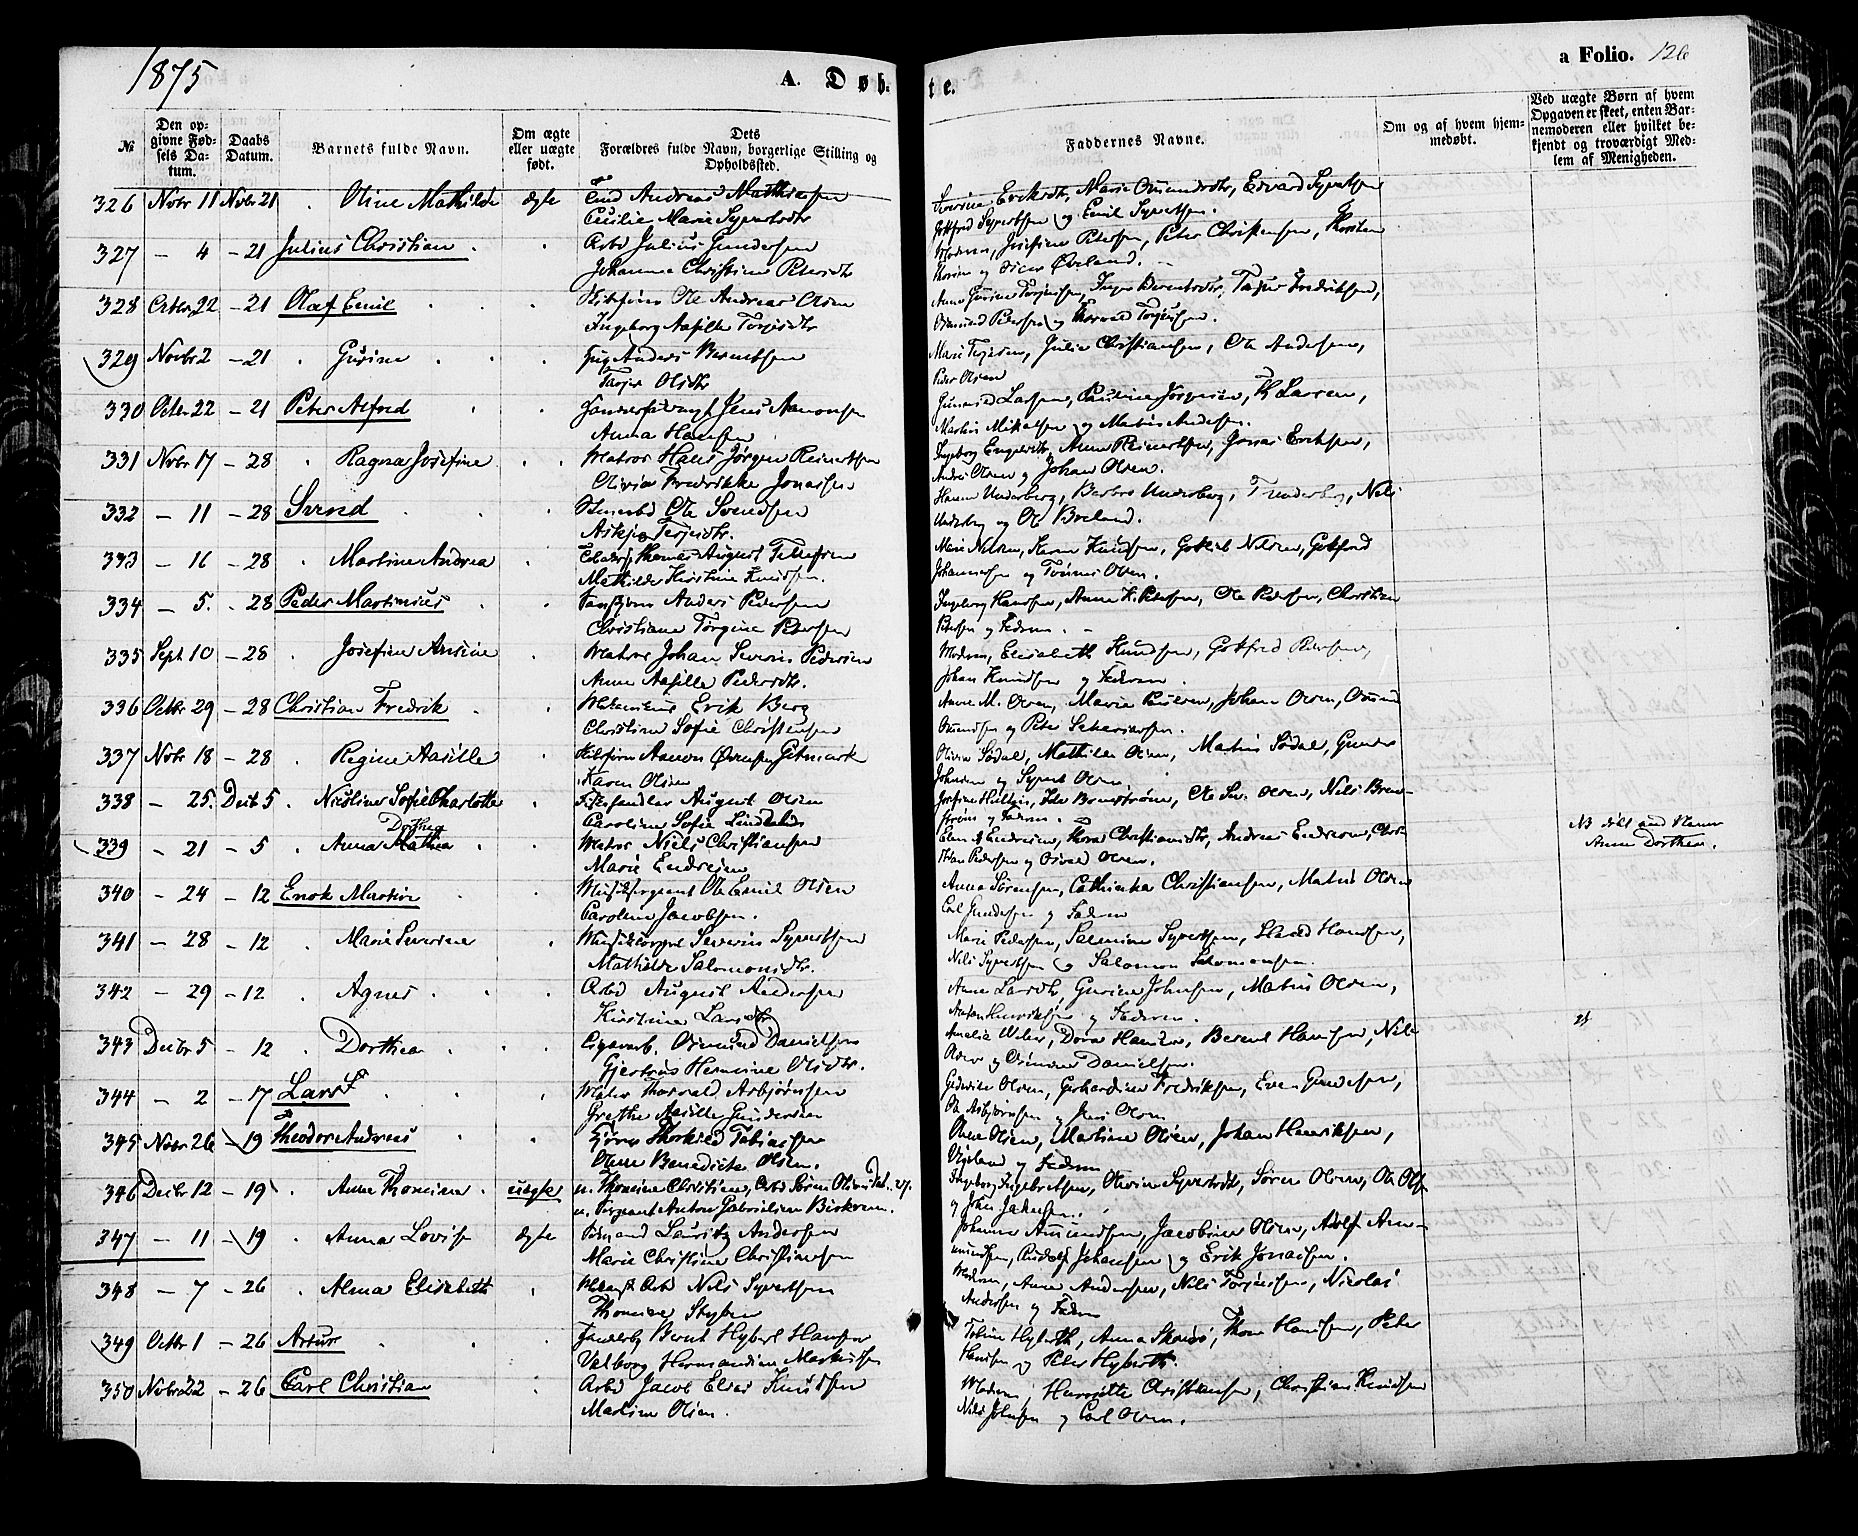 1875
A. Døb-
te.
a Folio. 126
№
Den op-
givne Fød-
sels Da-
tum.
Daabs
Datum.
Barnets fulde Navn.
Om ægte
eller uægte
født.
Dets
Forældres fulde Navn, borgerlige Stilling og
Opholdssted.
Faddernes Navne.
Om og af hvem hjem-
medøbt.
Ved uægte Børn af hvem
Opgaven er skeet, enten Bar-
nemoderen eller hvilket be-
kjendt og troværdigt Med-
lem af Menigheden.
326 Novbr 11 Novbr 21 Oline Mathilde ægte Andreas Mathiesen
Cecilie Marie Syvertsdtr
Eriksdtr, Marie Osmundsdtr, Edvard Syvertsen
Gotfred Syvertsen og Emil Syvertsen.
327 – 4 – 21 Julius Christian Arbd Julius Gundersen
Johanne Christine Petersdtr
Moderen, Josefine Petersen, Peter Christensen,
og Øveland.
328 Octbr. 22 – 21 Olaf Emil Ole Andreas Olsen
Ingeborg Aasille Terjesdtr
Anne Gurine Torjusen, Inger Berentsdtr, Fredriksen,
Osmund Petersen og Thorvald Torjusen.
329 Novbr 2 – 21 Gurine Anders Berntsen
Olsdtr
Marie Terjesen, Julie Christiansen, Ole Andersen,
Peder Olsen
330 Octbr 22 – 21 Peter Alfred Jens Aanonsen
Anna Hansen
Larsen, Pauline Jörgensen, Th Larsen,
Martin Mikalsen og Martin Andersen.
331 Novbr 17 – 28 Ragna Josefine Matros Hans Jørgen Reinertsen
Olivia Fredrikke Jonassen
Ingeborg, Anne Reinertsen, Jonas Eriksen,
Andreas Olsen og Johan Olsen.
332 – 11 – 28 Svend Ole Svendsen
Terjesdtr.
Hanne Underberg, Berbro Underberg, T Underberg, Nils
Underberg og Ole Breland.
333 – 16 – 28 Martine Andrea Thomas August Tellefsen
Mathilde Kristine Knudsen.
Marie Nilsen, Karen Knudsen, Gotlieb Nilsen, Gotfred
Johannesen og Tönnes Olsen.
334 – 5. – 28 Peder Martinius Anders Pedersen
Christiane Torgine Petersen
Ingeborg Hansen, Anne K. Petersen, Ole Pedersen, Christian
Petersen og Faderen.
335 Sept 10 – 28 Josefine Ansine Matros Johan Severin Pedersen
Anne Aasille Pedersdtr.
Moderen, Elisabeth Knudsen, Gotfred Petersen,
Johan Knudsen og Faderen.
336 Octbr 29 – 28 Christian Fredrik Erik Berg
Christine Sofie Christensen
Anne M. Olsen, Marie Paulsen, Johan Olsen, Osmund
Osmundsen og Peter Sakariassen.
337 Novbr 18 – 28 Regine Aasille Aanon Gitmark
Karen Olsen
Oline Sødal, Mathilde Olsen, Martin Sødal, Gunder
Johnsen og Syvert Olsen
338 – 25. Decbr 5 Nicoline Sofie Charlotte Fiskehandler August Olsen
Caroline Sofie
Josefine, Ole Olsen, Nils
og Faderen.
339 – 21 – 5 Anna Mathea Dorthea Matros Niels Christiansen
Marie Endresen
Endresen, Thora Christiansdtr, Andreas Endresen,
Pedersen og Osvald Olsen.
NB døbt med Navn
Anne Dorthea.
340 – 24 – 12 Enok Martin Ole Emil Olsen
Caroline Jacobsen.
Anna Sörensen, Cathinka Christiansen, Matius Olsen
Carl Gundersen og Faderen
341 – 28 – 12 Marie Severine Severin Syvertsen
Mathilde Salomonsdtr.
Marie Pedersen, Severine Syvertsen, Hansen,
Nils Syvertsen og Salomon Salomonsen.
342 – 29 – 12 Agnes Arbd August Andersen
Kirstine Larsdtr
Anne Larsdtr, Gurine Johnsen, Matius Olsen,
Anton Henriksen og Faderen.
343 Decbr 5 – 12 Dorthea Osmund Danielsen
Gjertrus Hermine Olsdtr.
Amalia Weber, Dora Hansen, Bernt Hansen, Nils
Olsen og Danielsen.
344 – 2 – 17 Lars Thorvald Asbjørnsen
Grethe Aasille Gundersen
Olsen, Gerhardine Fredriksen, Even Gundersen,
Ole Asbjørnsen og Jens Olsen
345 Novbr 26 – 19 Theodor Andreas Thorkild Tobiassen
Olene Benedicte Olsen.
Olene Olsen, Martine Olsen, Johan Henriksen,
og Faderen
346 Decbr 12 – 19 Anne Thomine uægte Thomine Christine, Arbd Sören Olsen
Sergeant Anton Gabrielsen
Ingeborg Ingebretsen, Syvertsdtr, Sören Olsen, Ole Olsen
og John Jakobsen.
347 – 11 – 19 Anna Lovise ægte Lauritz Andersen
Marie Christine Christiansen
Johanne Amundsen, Jacobine Olsen, Adolf Am-
undsen, Rudolf Johansen og Erik Jonassen.
348 – 7 – 26 Alma Elisabeth Arbd Nils Syvertsen
Thomine
Moderen, Anne Andersen, Nils Torjussen, Nicolai
Andersen og Faderen
349 Octbr 1 – 26 Artur Bernt Hybert Hansen
Valborg Hermandine Markussen
Hyberth, Anna, Thom Hansen, Peter
Hansen og Peter Hyberth.
350 Novbr 22 – 26 Carl Christian Arbd Jacob Elias Knudsen
Martine Olsen.
Moderen, Henriette Christiansen, Christian Knudsen
Nils Johnsen og Carl Olsen.